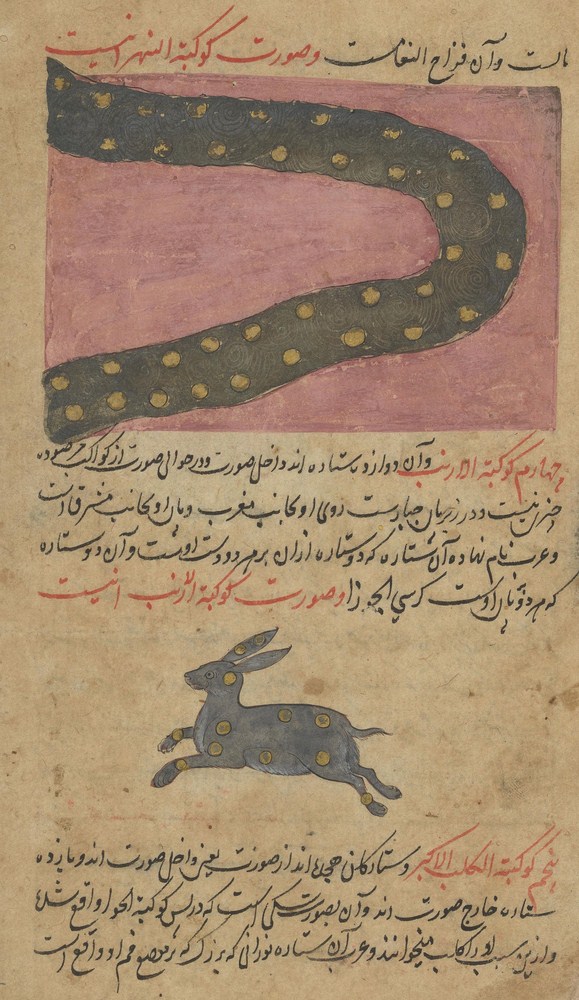 وآن فزاح النعامست وصورت کوکبة النهر اینست
چهارم کوکبة الارنب وآن دوازده ستاره اند داخل صورت ودر حوالی صورت از کواکب مرصوده
چیزی نیست ودر زیر پای جبارست روی او بجانب مغرب وپای او بجانب مشرقست
وعرب نام نهاده آن ستاره که دو ستاره ازان بر هر دو دست اوست وآن دو ستاره
که بر هر دو پای اوست کرسی الجوزا وصورت کوکبة الارنب اینست
پنجم کوکبة الکلب الاکبر وستارکان اند از صورت یعنی داخل صورت اند ویازده
ستاره خارج صورت اند وآن بصورت سکی است که در پس کوکبة الجوزا واقع شده
وازین سبب او را کلب میخوانند وعرب آن ستاره نورانی که بزرک که بر موضع فم او واقع است